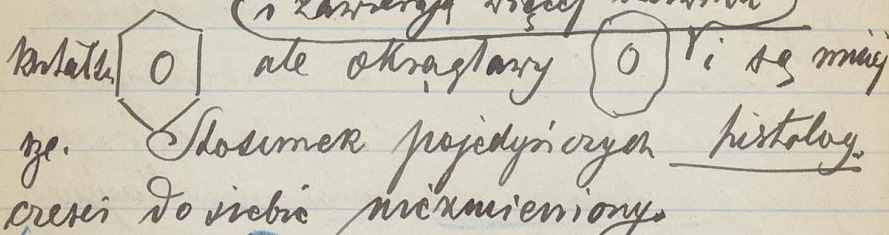 i zawierają więcej
kształtu O ale okrągławy O i są mniej
sze. Stosunek pojedyńczych histolog.
części do siebie niezmieniony.